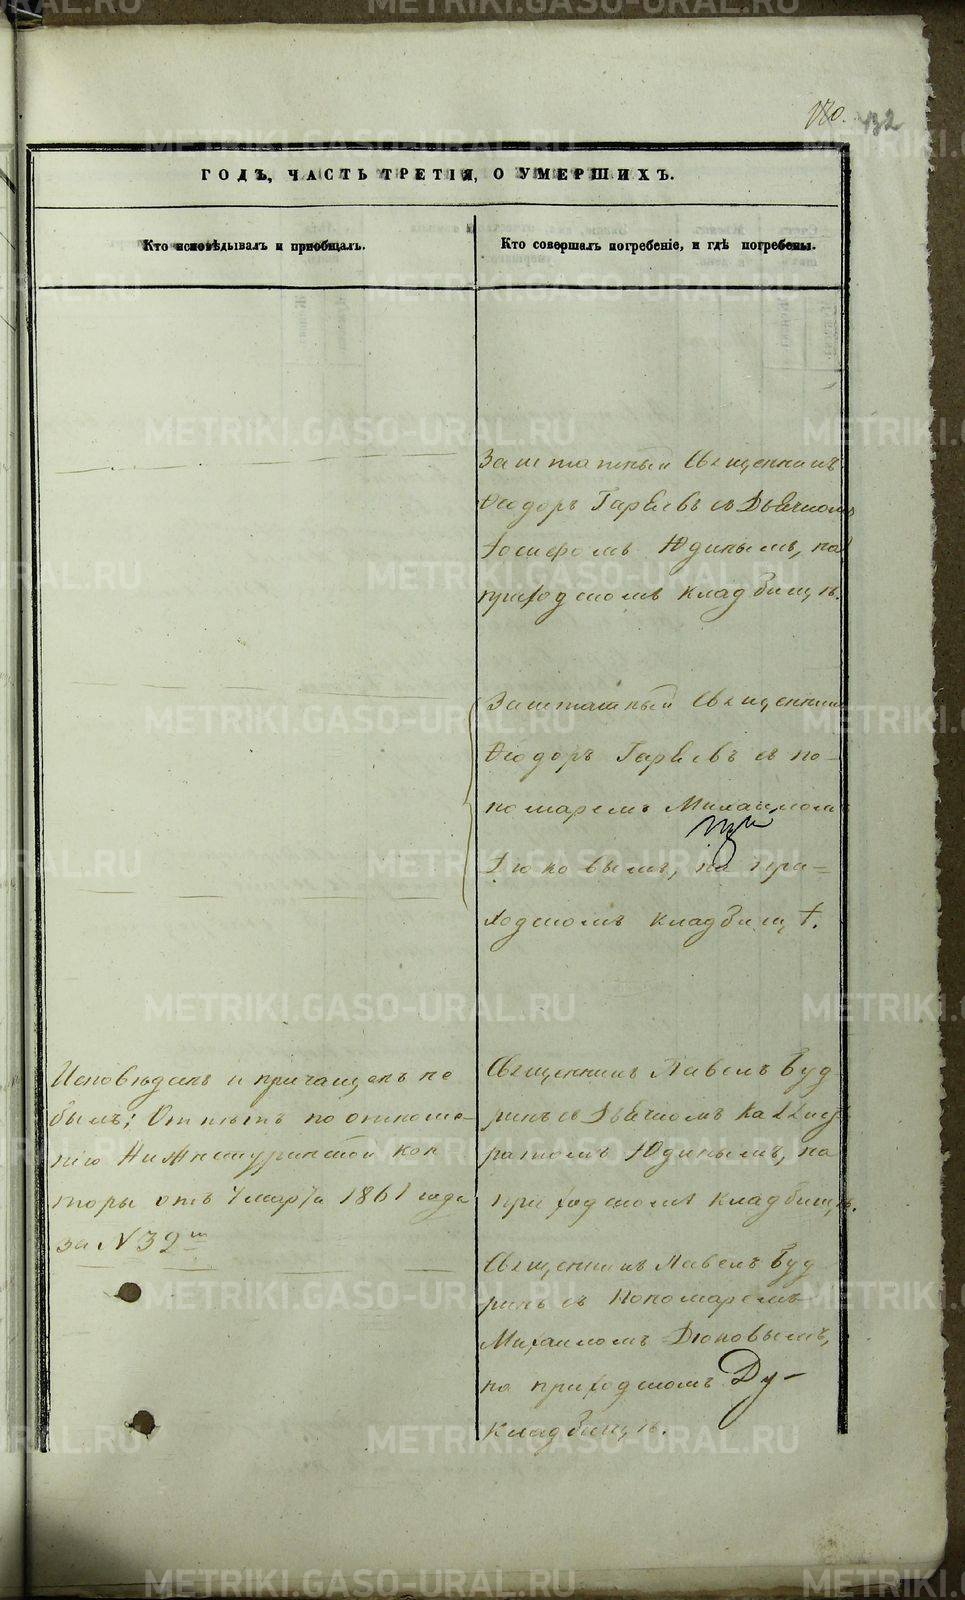 180. 432
ГОДЪ, ЧАСТЬ ТРЕТІЯ, О УМЕРШИХЪ.
Кто исповѣдывалъ и пріобщалъ.
Кто совершалъ погребеніе, и гдѣ погребены.
Заштатный Священникъ
Ѳеодоръ Гаряевъ съ Дьячкомъ
Іосифомъ Юдинымъ, на
приходскомъ кладбищѣ.
Заштатный Священникъ
Ѳеодоръ Гаряевъ съ по-
номаремъ Михаиломъ
Дюковымъ, на при=
ходскомъ кладбищѣ.
Исповѣданъ и причащенъ не
былъ; Отпѣтъ по отноше-
нію Нижнетуринской кон
торы отъ 7 марта 1861 года
за N 32 м
Священникъ Павелъ Буд
ринъ съ Дьячкомъ
Юдинымъ, на
приходскомъ кладбищѣ.
Священникъ Павелъ Буд
ринъ съ Пономаремъ
Михаиломъ Дюковымъ,
на приходскомъ
Ду-
кладбищѣ.
METRIKI.GASO-URAL.RU